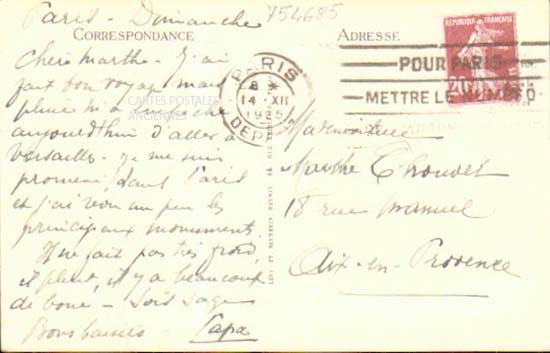 Paris - Dimanche
754685
CORRESPONDANCE
ADRESSE
Chère Marthe - J'ai
fait bon voyage mais
pluie m'a empêché
aujourd'hui d'aller à
Versailles - Je me suis
promené dans Paris
et j'ai revu un peu les
principaux monuments.
Il ne fait pas très froid,
il pleut, il y a beaucoup
de boue - Sois sage
Bons baisers - Papa
CARTES POSTALES
ANCIENNES
PARIS
14 - XII
1925
DEPART
POUR PARIS
METTRE LE NUMERO
REPUBLIQUE FRANÇAISE
20
Mademoiselle
Marthe Chouvet
18 rue Manuel
Aix-en-Provence